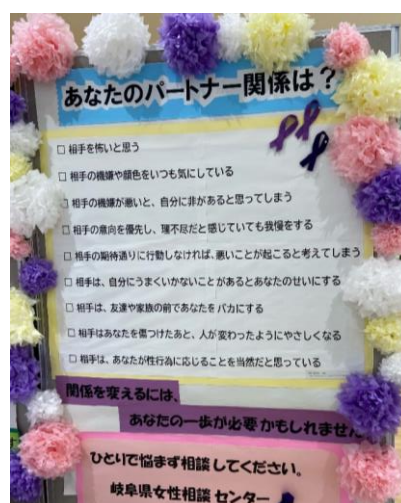 あなたのパートナー関係は？
□ 相手を怖いと思う
□ 相手の機嫌や顔色をいつも気にしている
□ 相手の機嫌が悪いと、自分に非があると思ってしまう
□ 相手の意向を優先し、理不尽だと感じていても我慢をする
□ 相手の期待通りに行動しなければ、悪いことが起こると考えてしまう
□ 相手は、自分にうまくいかないことがあるとあなたのせいにする
□ 相手は、友達や家族の前であなたをバカにする
□ 相手はあなたを傷つけたあと、人が変わったようにやさしくなる
□ 相手は、あなたが性行為に応じることを当然だと思っている
関係を変えるには、
あなたの一歩が必要かもしれません
ひとりで悩まず相談してください。
岐阜県女性相談センター